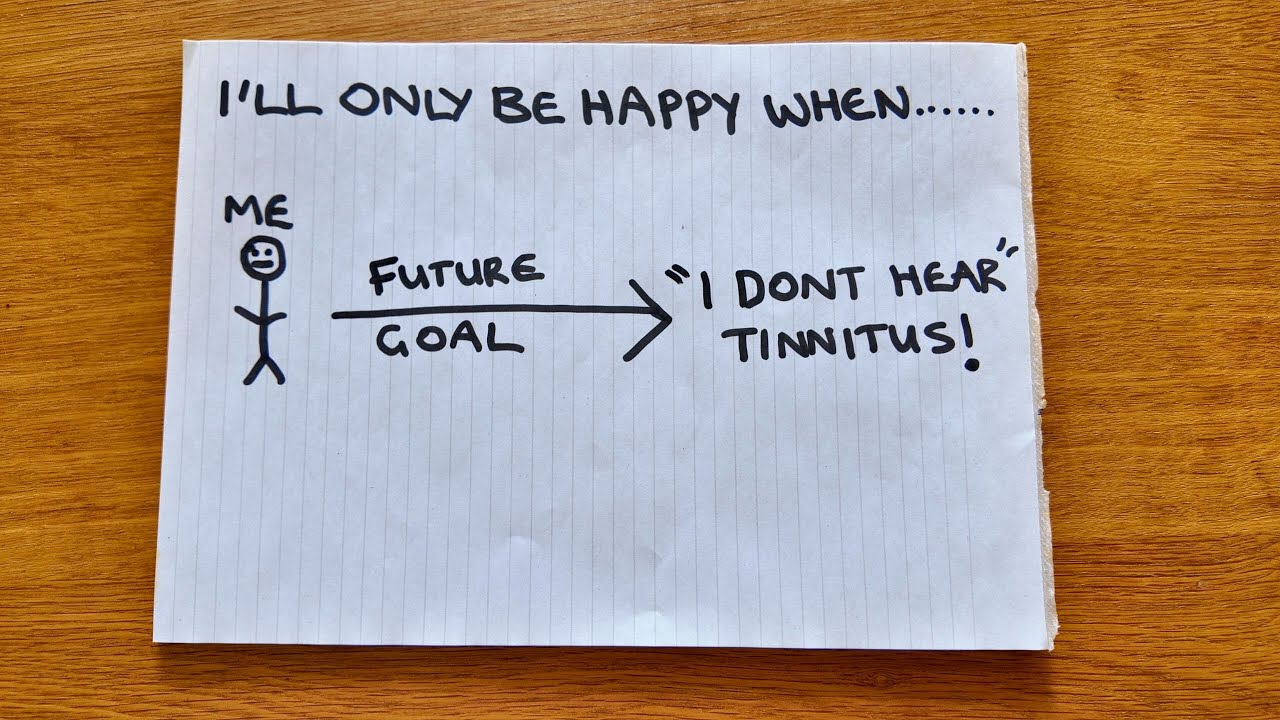 I'LL ONLY BE HAPPY WHEN......
ME
FUTURE
GOAL
"I DONT HEAR"
TINNITUS!